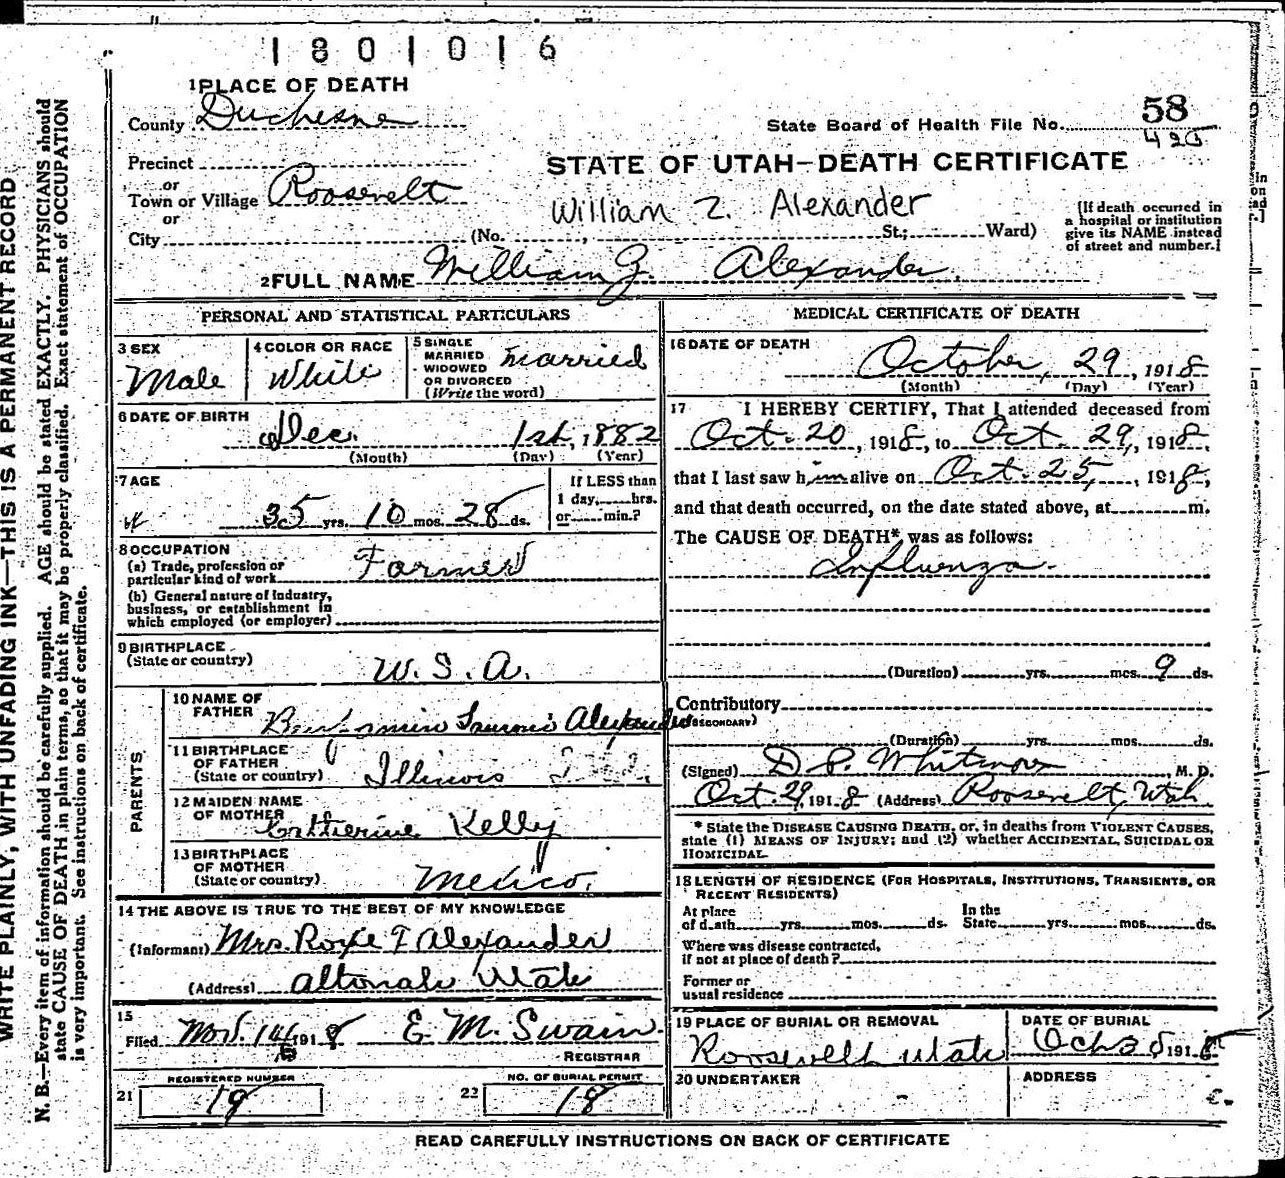 1801016
1 PLACE OF DEATH
County Duchesne
58
State Board of Health File No.
425
STATE OF UTAH—DEATH CERTIFICATE
Precinct
or
Town or Village Roosevelt
or
William Z. Alexander
City (No. , St.; Ward)
(If death occurred in a hospital or institution give its NAME instead of street and number.)
2 FULL NAME William Z. Alexander
PERSONAL AND STATISTICAL PARTICULARS
3 SEX
Male
4 COLOR OR RACE
White
5 SINGLE
MARRIED
WIDOWED
OR DIVORCED
(Write the word)
married
6 DATE OF BIRTH
Dec. 1st, 1882
(Month) (Day) (Year)
7 AGE
35 yrs. 10 mos. 28 ds.
If LESS than
1 day, hrs.
or min.?
8 OCCUPATION
(a) Trade, profession or
particular kind of work Farmer
(b) General nature of industry,
business, or establishment in
which employed (or employer)
9 BIRTHPLACE
(State or country)
U. S. A.
PARENTS
10 NAME OF
FATHER
Benjamin Alexander
11 BIRTHPLACE
OF FATHER
(State or country)
Illinois
12 MAIDEN NAME
OF MOTHER
Catherine Kelly
13 BIRTHPLACE
OF MOTHER
(State or country)
Mexico.
14 THE ABOVE IS TRUE TO THE BEST OF MY KNOWLEDGE
(Informant) Mrs. Roxie T Alexander
(Address) Altonah Utah
15
Filed Nov. 14 1918 E. M. Swain
REGISTRAR
REGISTERED NUMBER
21 19
NO. OF BURIAL PERMIT
22 18
MEDICAL CERTIFICATE OF DEATH
16 DATE OF DEATH
October, 29, 1918
(Month) (Day) (Year)
17 I HEREBY CERTIFY, That I attended deceased from
Oct. 20, 1918, to Oct. 29, 1918
that I last saw him alive on Oct. 25, 1918,
and that death occurred, on the date stated above, at m.
The CAUSE OF DEATH* was as follows:
Influenza.
(Duration) yrs. mos. 9 ds.
Contributory
(SECONDARY)
(Duration) yrs. mos. ds.
(Signed) D. P. Whitmore, M. D.
Oct. 29, 1918 (Address) Roosevelt, Utah
* State the DISEASE CAUSING DEATH, or, in deaths from VIOLENT CAUSES,
state (1) MEANS OF INJURY; and (2) whether ACCIDENTAL, SUICIDAL OR
HOMICIDAL.
18 LENGTH OF RESIDENCE (FOR HOSPITALS, INSTITUTIONS, TRANSIENTS, OR
RECENT RESIDENTS)
At place
of death yrs. mos. ds.
In the
State yrs. mos. ds.
Where was disease contracted,
if not at place of death?
Former or
usual residence
19 PLACE OF BURIAL OR REMOVAL
Roosevelt Utah
DATE OF BURIAL
Oct 30 1918
20 UNDERTAKER
ADDRESS
READ CAREFULLY INSTRUCTIONS ON BACK OF CERTIFICATE
WRITE PLAINLY, WITH UNFADING INK—THIS IS A PERMANENT RECORD
N. B.—Every item of information should be carefully supplied. AGE should be stated EXACTLY. PHYSICIANS should
state CAUSE OF DEATH in plain terms, so that it may be properly classified. Exact statement of OCCUPATION
is very important. See instructions on back of certificate.